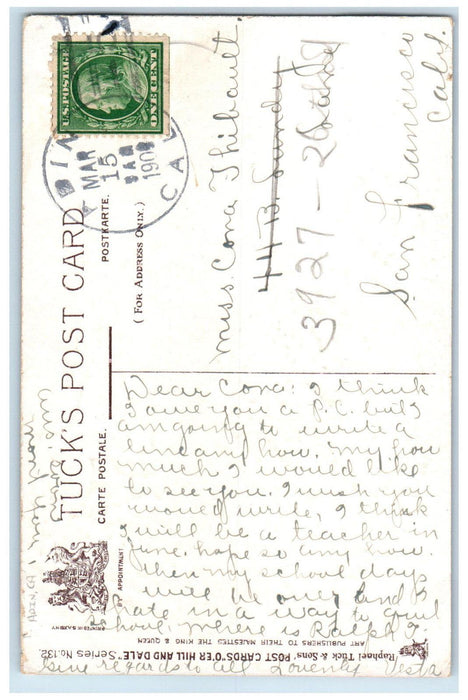 U.S. POSTAGE
ONE CENT
MAR
15
1909
CA
TUCK'S POST CARD
CARTE POSTALE.
POSTKARTE.
( FOR ADDRESS ONLY.)
Miss Cora Thibault
3927-26
San Francisco
Calif.
Dear Cora: I think
I owe you a P.C. but I
am going to write a
line any how. My how
much I would like
to see you. I wish you
would write, I think
I will be a teacher in
June, hope so any how.
Then my school days
will be over and I
hate in a way to quit
school. Where is Ralph?
Give regards to all Lovenly Vesta
ADIN, CA
BY APPOINTMENT
PRINTED IN SAXONY
Raphael Tuck & Sons' "POST CARDS "O'ER HILL AND DALE" Series No. 132.
ART PUBLISHERS TO THEIR MAJESTIES THE KING & QUEEN